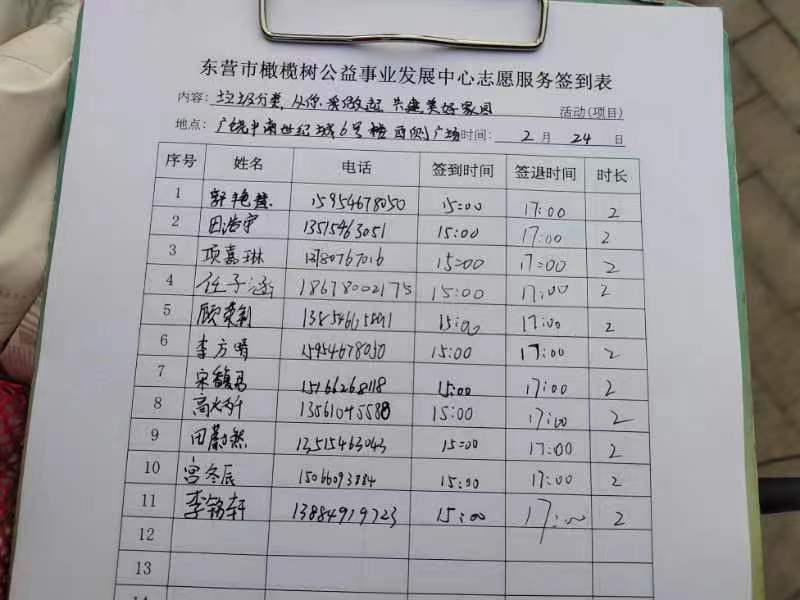 东营市橄榄树公益事业发展中心志愿服务签到表
内容：垃圾分类 从你我做起 共建美好家园 活动(项目)
地点：广饶中南世纪城6号楼西侧广场 时间：2月24日
序号 姓名 电话 签到时间 签退时间 时长
1 艳慧 15954678050 15:00 17:00 2
2 田浩宇 13515463051 15:00 17:00 2
3 项嘉琳 15:00 17:00 2
4 任子涵 18678002175 15:00 17:00 2
5 顾荣利 15:00 17:00 2
6 李方晴 15954678050 15:00 17:00 2
7 宋馥君 15166268118 15:00 17:00 2
8 高 13561045588 15:00 17:00 2
9 田蔚然 13515463043 15:00 17:00 2
10 宫冬辰 15066093884 15:00 17:00 2
11 李铭轩 13884919723 15:00 17:00 2
12
13